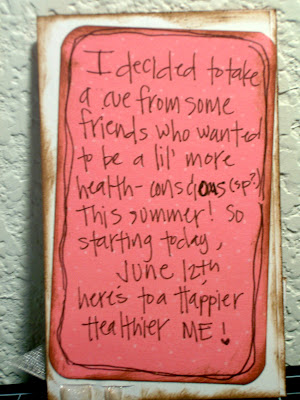 I decided to take
a cue from some
friends who wanted
to be a lil' more
health-conscious (sp?)
this summer! So
starting today,
June 12th,
here's to a Happier
Healthier ME!